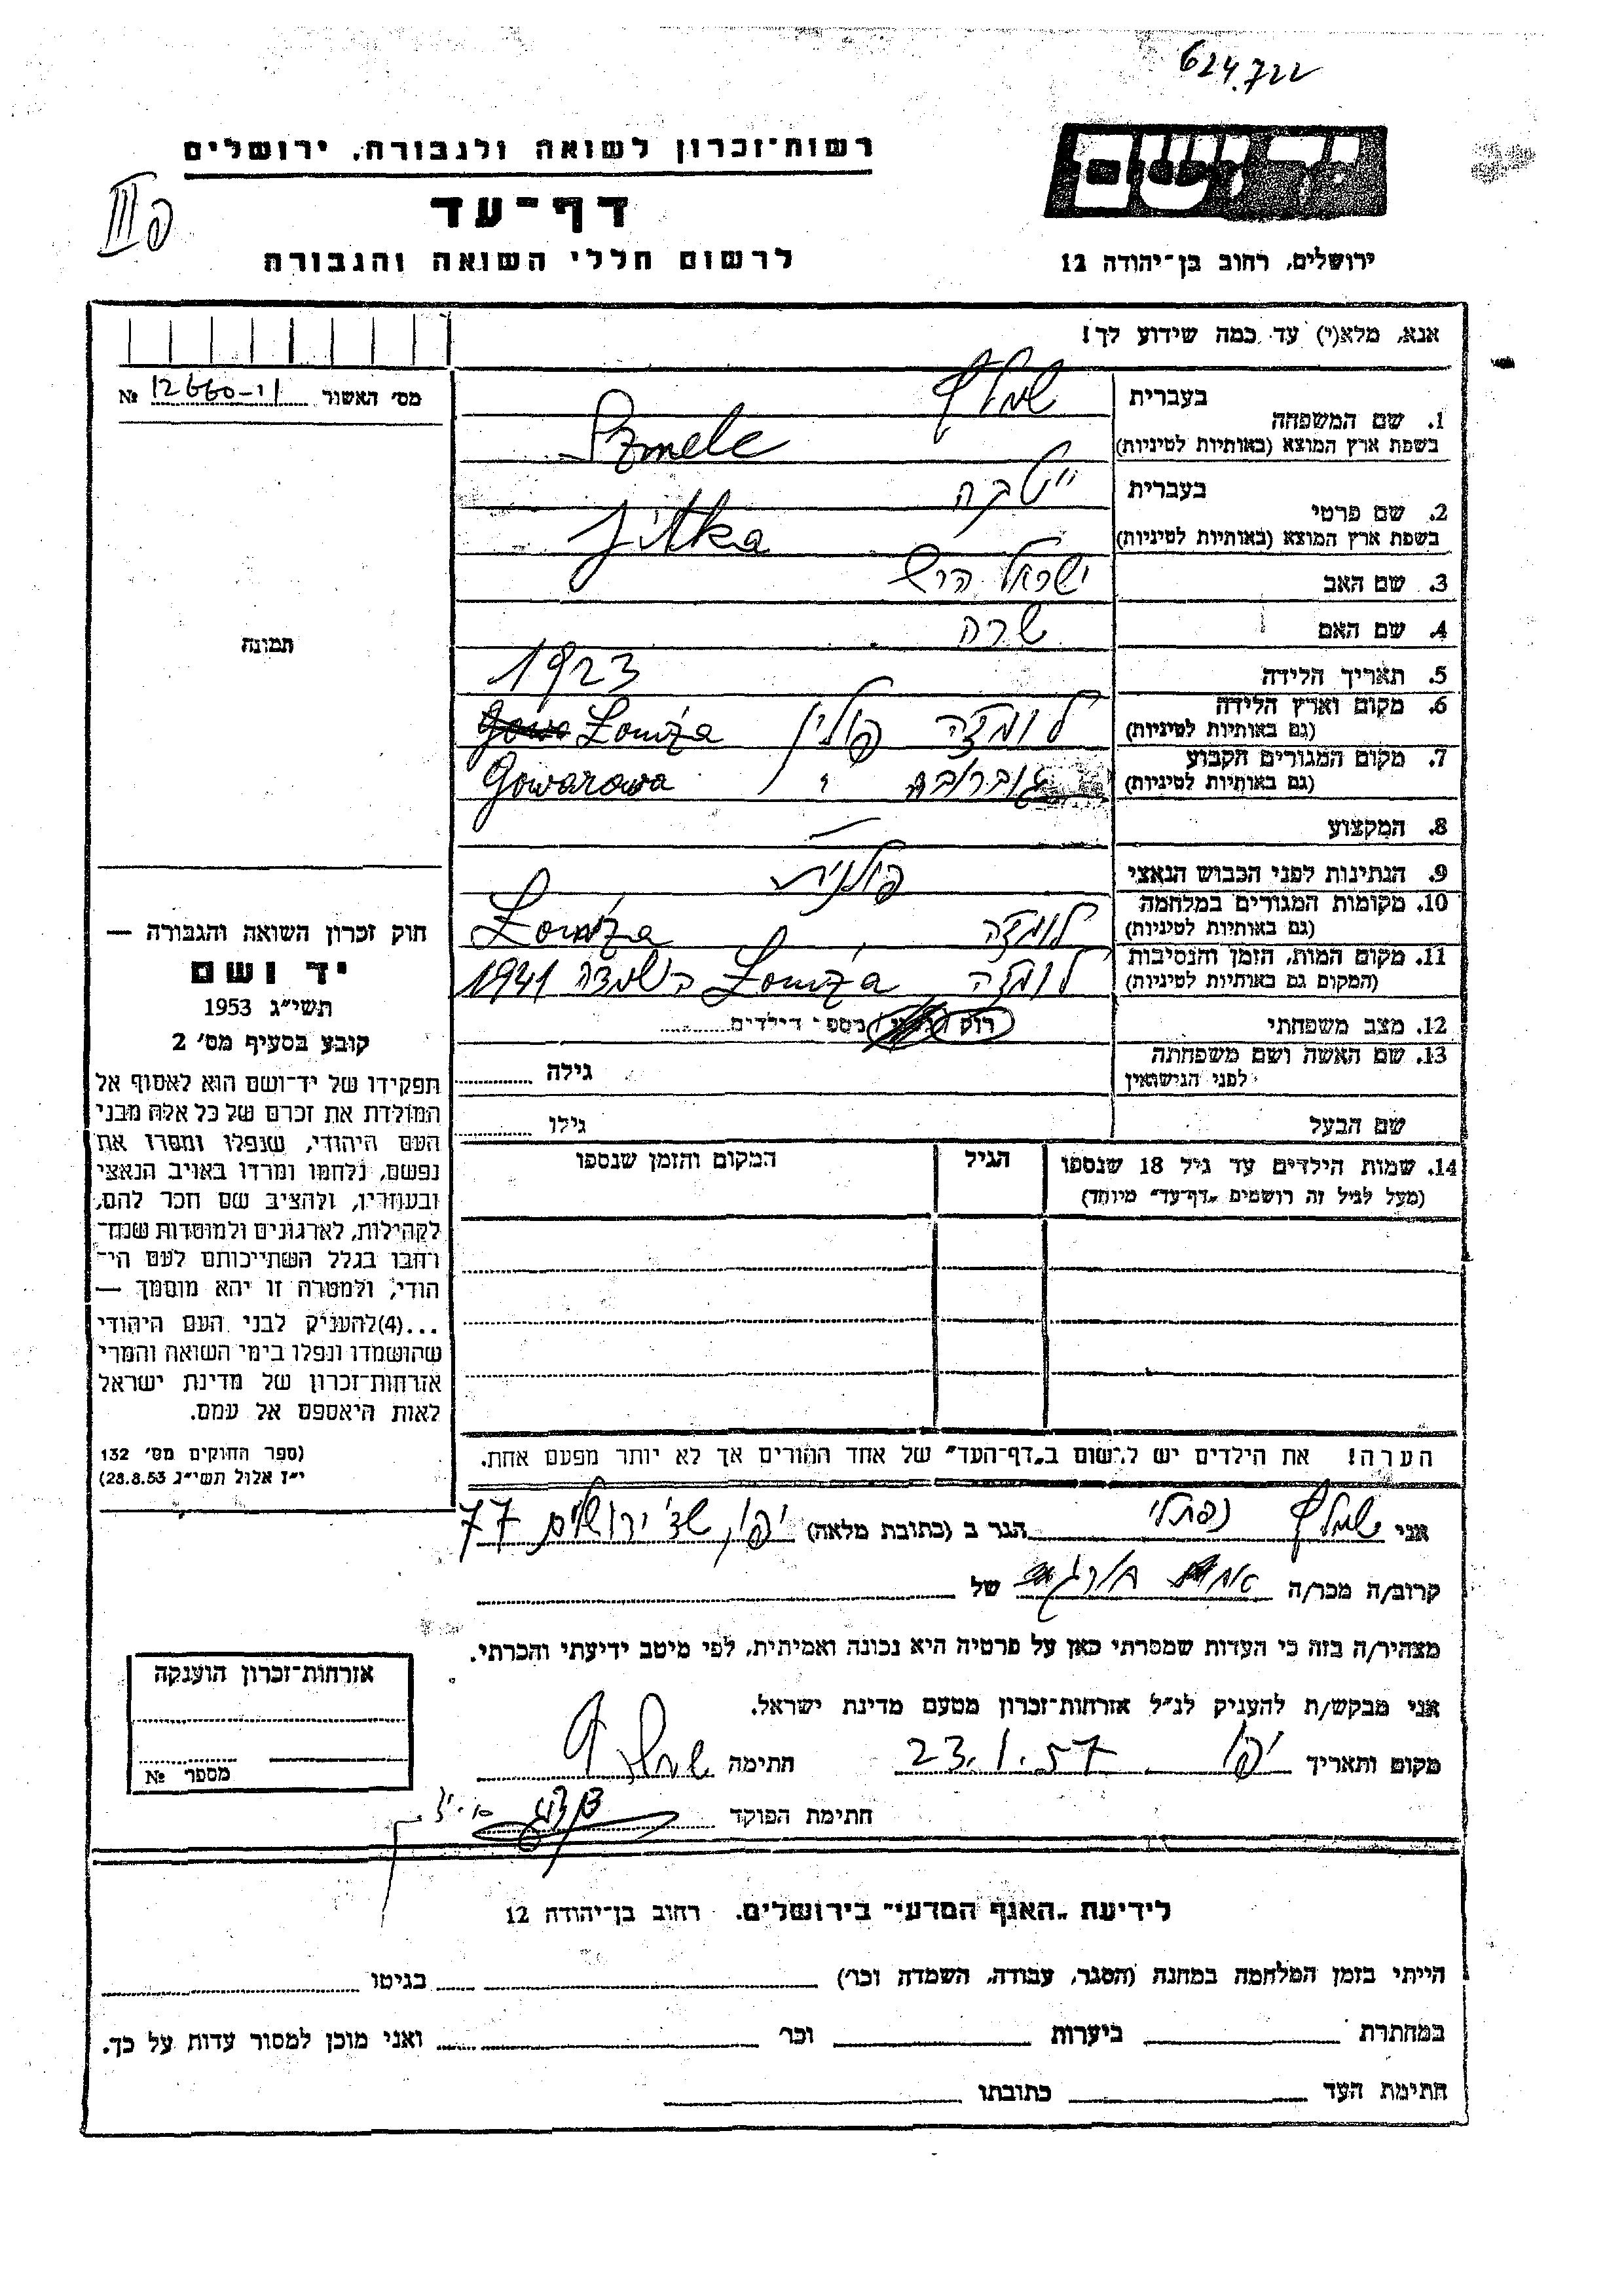 624.722
רשות־זכרון לשואה ולגבורה. ירושלים
יד ושם
דף־עד
לרשום חללי השואה והגבורה
ירושלים, רחוב בן־יהודה 12
אנא, מלא(י) עד כמה שידוע לך!
מס׳ האשור № 12660-11
תמונה
1. שם המשפחה בעברית
בשפת ארץ המוצא (באותיות לטיניות) Szmele
2. שם פרטי בעברית ייטקה
בשפת ארץ המוצא (באותיות לטיניות) Jitka
3. שם האב ישראל הרש
4. שם האם שרה
5. תאריך הלידה 1923
6. מקום וארץ הלידה (גם באותיות לטיניות) לומזה פולין Łomża
7. מקום המגורים הקבוע (גם באותיות לטיניות) גוברובה Gowarowa
8. המקצוע —
9. הנתינות לפני הכבוש הנאצי פולנית
10. מקומות המגורים במלחמה (גם באותיות לטיניות) לומזה Łomża
11. מקום המות, הזמן והנסיבות (המקום גם באותיות לטיניות) לומזה Łomża בהשמדה 1941
12. מצב משפחתי רוק מספר הילדים
13. שם האשה ושם משפחתה לפני הנישואין גילה
שם הבעל גילו
14. שמות הילדים עד גיל 18 שנספו הגיל המקום והזמן שנספו
(מעל לגיל זה רושמים „דף־עד״ מיוחד)
חוק זכרון השואה והגבורה —
יד ושם
תשי״ג 1953
קובע בסעיף מס׳ 2
תפקידו של יד־ושם הוא לאסוף אל
המולדת את זכרם של כל אלה מבני
העם היהודי, שנפלו ומסרו את
נפשם, נלחמו ומרדו באויב הנאצי
ובעוזריו, ולהציב שם וזכר להם,
לקהילות, לארגונים ולמוסדות שנח־
רבו בגלל השתייכותם לעם הי־
הודי, ולמטרה זו יהא מוסמך —
...(4)להעניק לבני העם היהודי
שהושמדו ונפלו בימי השואה והמרי
אזרחות־זכרון של מדינת ישראל
לאות היאספם אל עמם.
(ספר החוקים מס׳ 132
י״ז אלול תשי״ג 28.8.53)
הערה! את הילדים יש לרשום ב„דף־העד״ של אחד ההורים אך לא יותר מפעם אחת.
אני נפתלי הגר ב (כתובת מלאה) יפו, שד׳ ירושלים 77
קרוב/ה מכר/ה של
מצהיר/ה בזה כי העדות שמסרתי כאן על פרטיה היא נכונה ואמיתית, לפי מיטב ידיעתי והכרתי.
אני מבקש/ת להעניק לנ״ל אזרחות־זכרון מטעם מדינת ישראל.
מקום ותאריך יפו 23.1.57 חתימה
חתימת הפוקד
אזרחות־זכרון הוענקה
מספר №
לידיעת „האגף המדעי״ בירושלים. רחוב בן־יהודה 12
הייתי בזמן המלחמה במחנה (הסגר, עבודה, השמדה וכו׳) בגיטו
במחתרת ביערות וכו׳ ואני מוכן למסור עדות על כך.
חתימת העד כתובתו